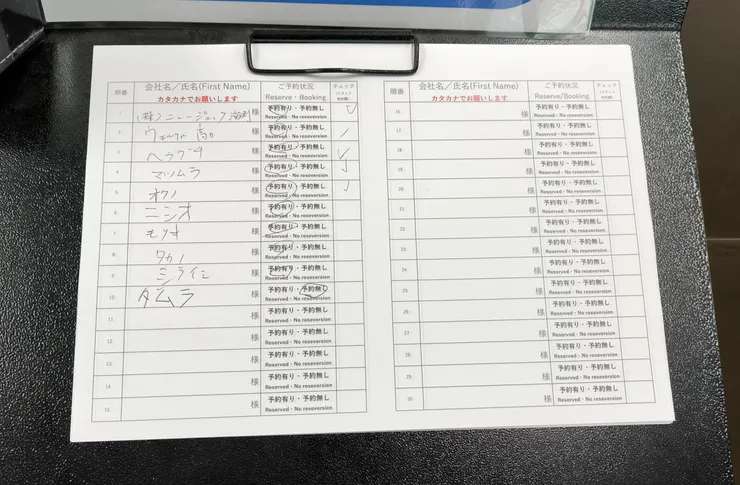 順番 会社名／氏名(First Name) ご予約状況 チェック
カタカナでお願いします Reserve・Booking
1 (株)ニュージェック 様 予約有り・予約無し
Reserved・No reseversion
2 様 予約有り・予約無し
Reserved・No reseversion
3 様 予約有り・予約無し
Reserved・No reseversion
4 マツムラ 様 予約有り・予約無し
Reserved・No reseversion
5 オクノ 様 予約有り・予約無し
Reserved・No reseversion
6 ニシオ 様 予約有り・予約無し
Reserved・No reseversion
7 モリオ 様 予約有り・予約無し
Reserved・No reseversion
8 様 予約有り・予約無し
Reserved・No reseversion
9 様 予約有り・予約無し
Reserved・No reseversion
10 タムラ 様 予約有り・予約無し
Reserved・No reseversion
11 様 予約有り・予約無し
Reserved・No reseversion
12 様 予約有り・予約無し
Reserved・No reseversion
13 様 予約有り・予約無し
Reserved・No reseversion
14 様 予約有り・予約無し
Reserved・No reseversion
15 様 予約有り・予約無し
Reserved・No reseversion
順番 会社名／氏名(First Name) ご予約状況 チェック
カタカナでお願いします Reserve/Booking
16 様 予約有り・予約無し
Reserved・No reseversion
17 様 予約有り・予約無し
Reserved・No reseversion
18 様 予約有り・予約無し
Reserved・No reseversion
19 様 予約有り・予約無し
Reserved・No reseversion
20 様 予約有り・予約無し
Reserved・No reseversion
21 様 予約有り・予約無し
Reserved・No reseversion
22 様 予約有り・予約無し
Reserved・No reseversion
23 様 予約有り・予約無し
Reserved・No reseversion
24 様 予約有り・予約無し
Reserved・No reseversion
25 様 予約有り・予約無し
Reserved・No reseversion
26 様 予約有り・予約無し
Reserved・No reseversion
27 様 予約有り・予約無し
Reserved・No reseversion
28 様 予約有り・予約無し
Reserved・No reseversion
29 様 予約有り・予約無し
Reserved・No reseversion
30 様 予約有り・予約無し
Reserved・No reseversion